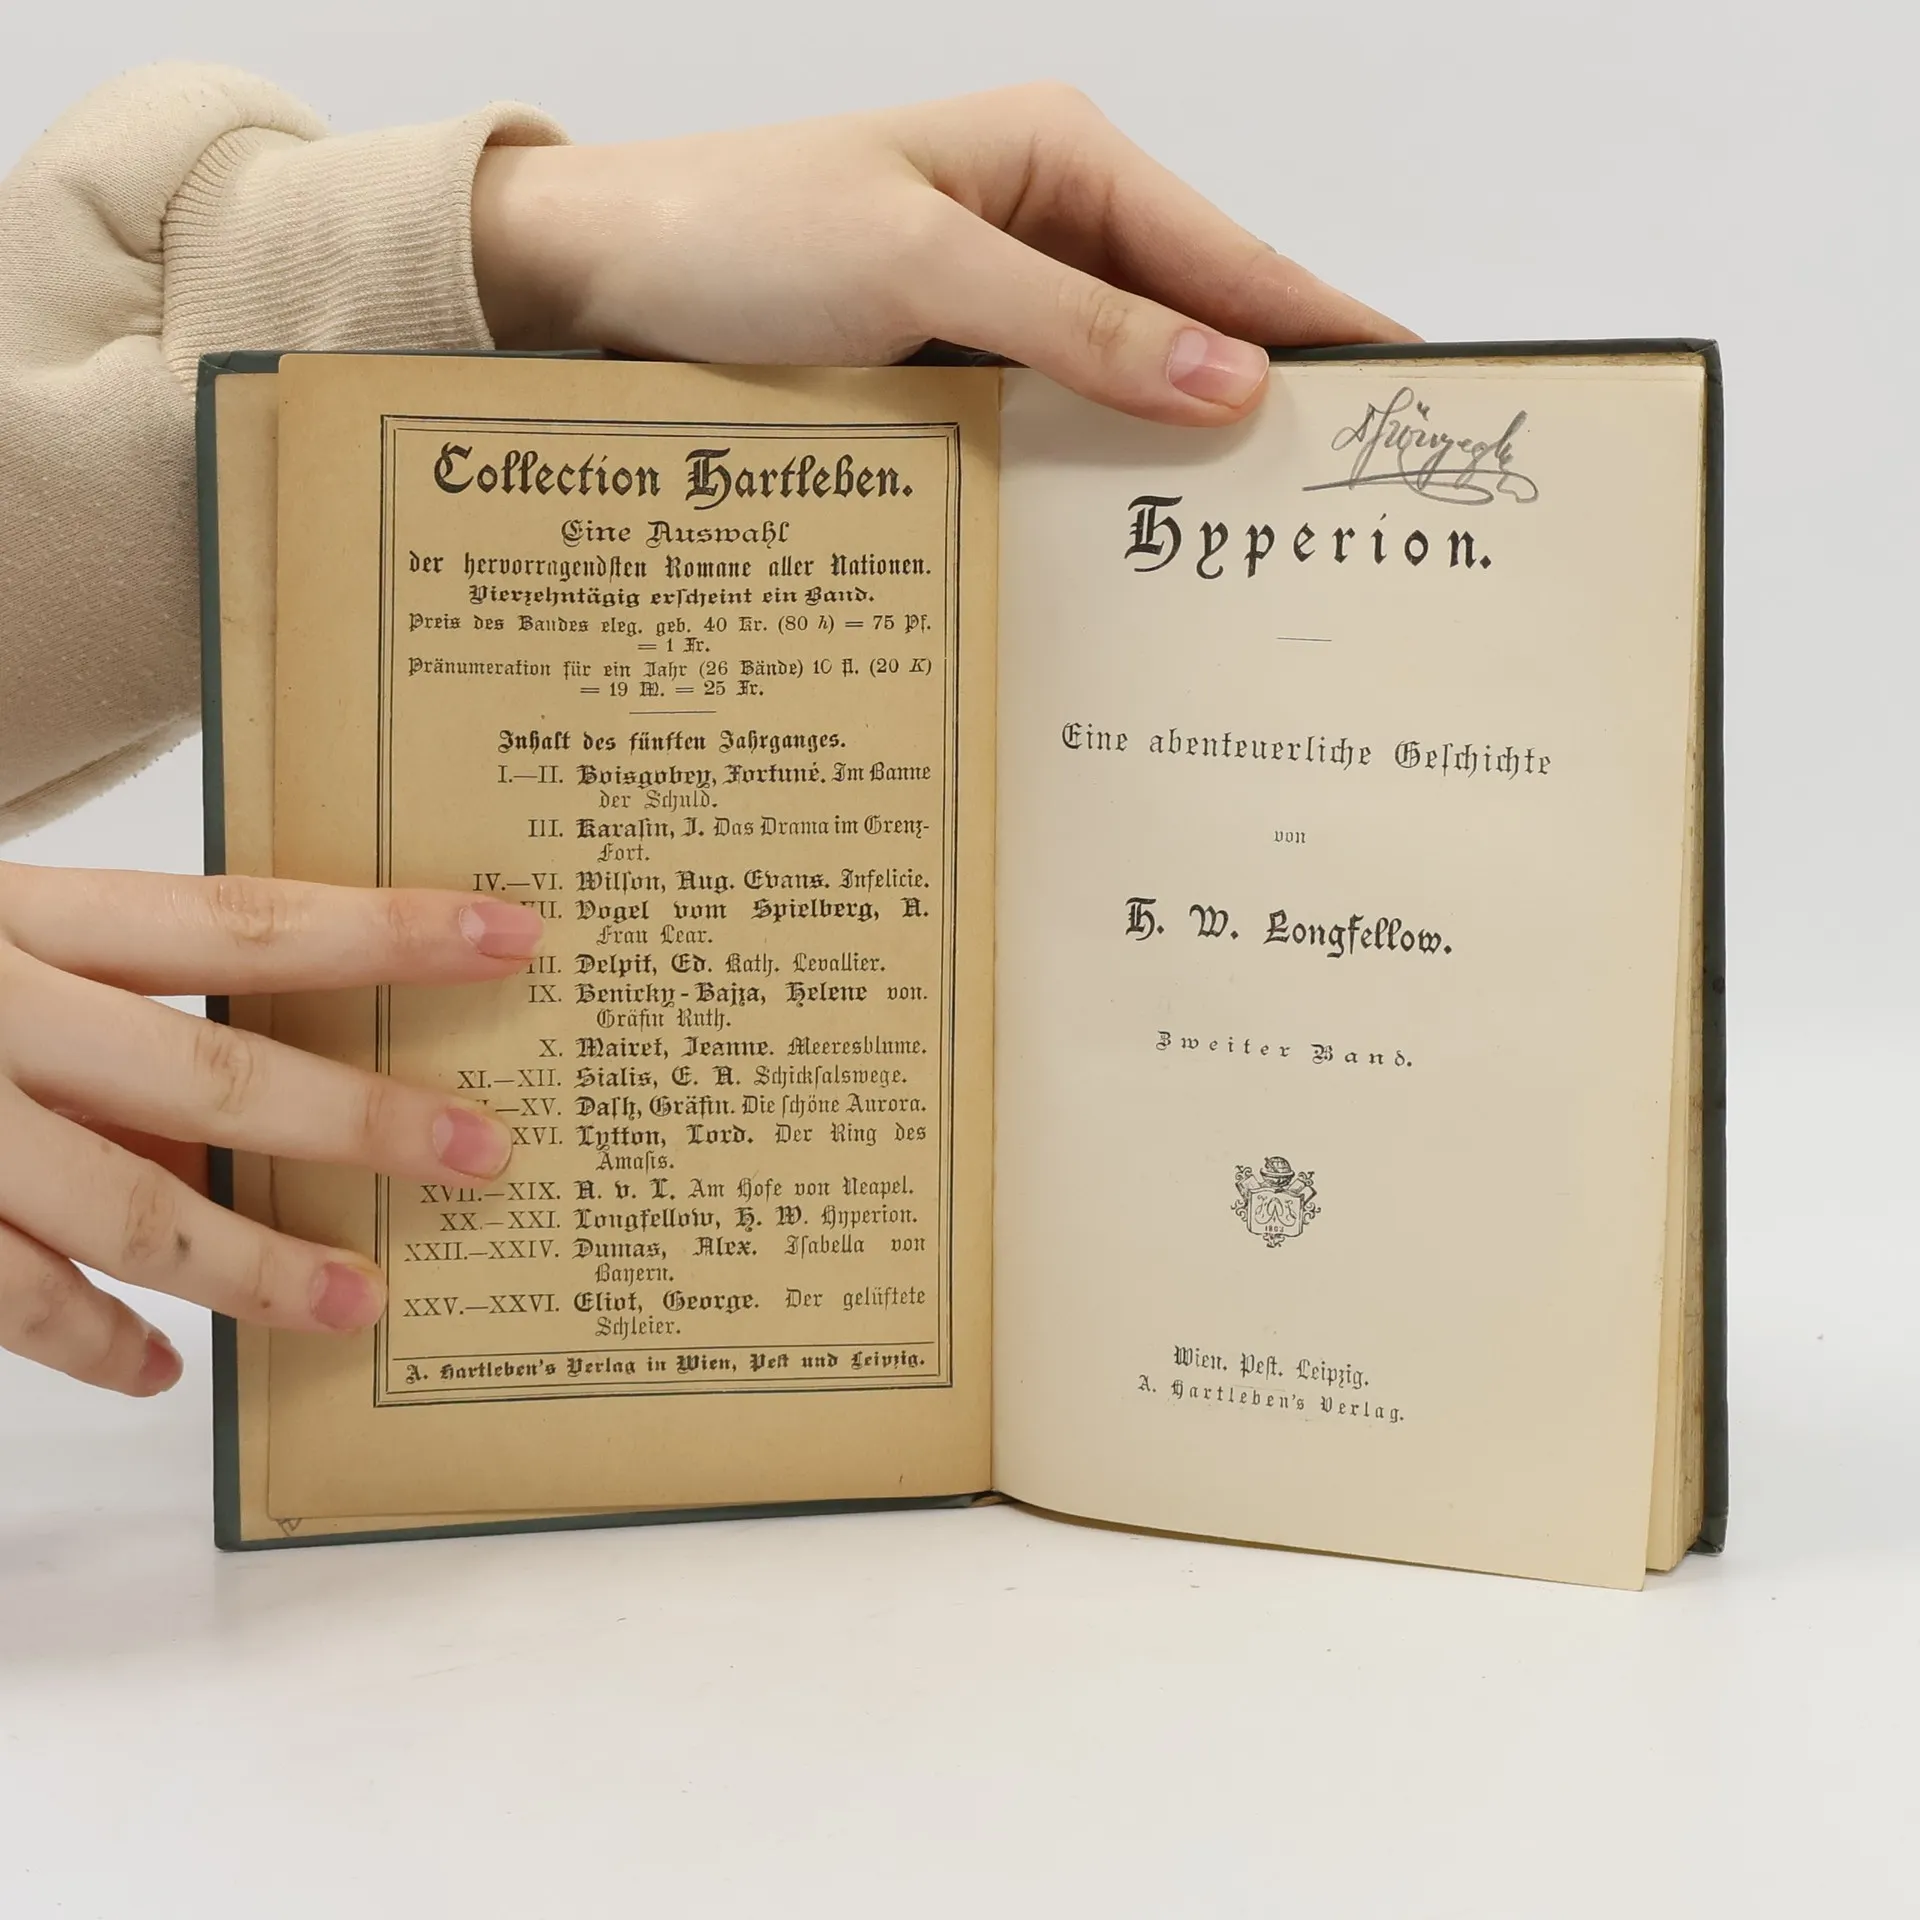 Collection Hartleben.
Eine Auswahl
der hervorragendſten Romane aller Nationen.
Vierzehntägig erſcheint ein Band.
Preis des Bandes eleg. geb. 40 Kr. (80 h) = 75 Pf.
= 1 Fr.
Pränumeration für ein Jahr (26 Bände) 10 fl. (20 K)
= 19 M. = 25 Fr.
Inhalt des fünften Jahrganges.
I.—II. Boisgobey, Fortuné. Im Banne
der Schuld.
III. Karaſin, J. Das Drama im Grenz-
Fort.
IV.—VI. Wilſon, Aug. Evans. Infelicie.
Vogel vom Spielberg, A.
Frau Lear.
Delpit, Ed. Kath. Levallier.
IX. Benicky-Bajza, Helene von.
Gräfin Ruth.
X. Mairet, Jeanne. Meeresblume.
XI.—XII. Sialis, E. A. Schickſalswege.
—XV. Daſh, Gräfin. Die ſchöne Aurora.
XVI. Lytton, Lord. Der Ring des
Amaſis.
XVII.—XIX. A. v. L. Am Hofe von Neapel.
XX.—XXI. Longfellow, H. W. Hyperion.
XXII.—XXIV. Dumas, Alex. Iſabella von
Bayern.
XXV.—XXVI. Eliot, George. Der gelüftete
Schleier.
A. Hartleben's Verlag in Wien, Peſt und Leipzig.
Hyperion.
Eine abenteuerliche Geſchichte
von
H. W. Longfellow.
Zweiter Band.
Wien. Peſt. Leipzig.
A. Hartleben's Verlag.